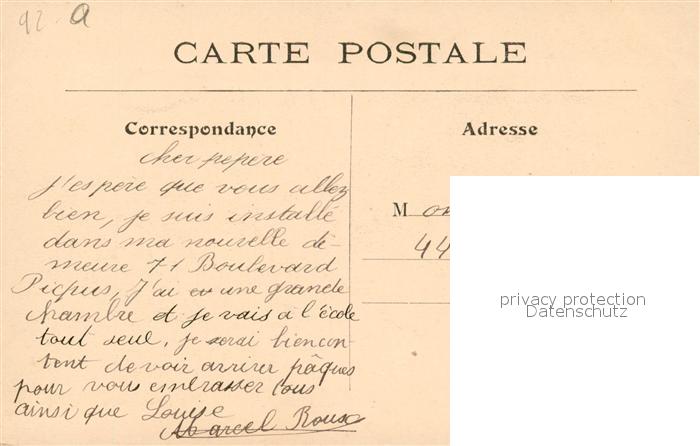 92 a
CARTE POSTALE
Correspondance
Adresse
cher pepere
j'espère que vous allez
bien, je suis installé
dans ma nouvelle de-
meure 71 Boulevard
Picpus, J'ai eu une grande
chambre et je vais à l'école
tout seul, je serai biencon-
tent de voir arrirer pâques
pour vous embrasser tous
ainsi que Louise
Marcel Roux
M on
44
privacy protection
Datenschutz